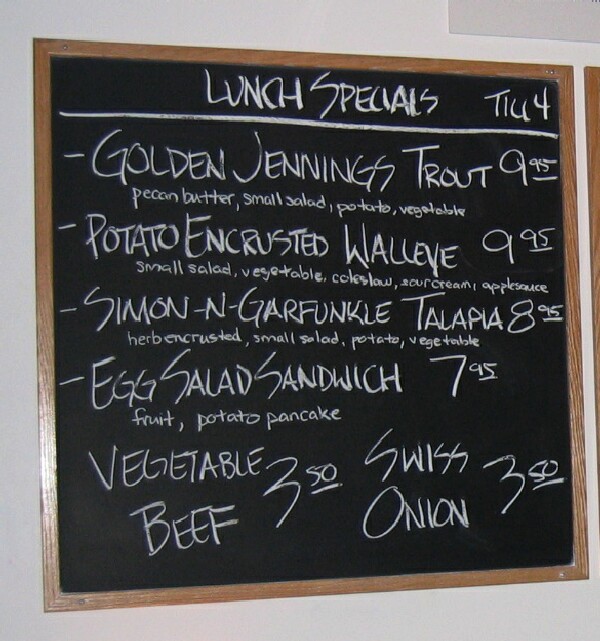 LUNCH SPECIALS TILL 4
- GOLDEN JENNINGS TROUT 9 95
pecan butter, small salad, potato, vegetable
- POTATO ENCRUSTED WALLEYE 9 95
small salad, vegetable, coleslaw, sour cream, applesauce
- SIMON-N-GARFUNKLE TALAPIA 8 95
herb encrusted, small salad, potato, vegetable
- EGG SALAD SANDWICH 7 95
fruit, potato pancake
VEGETABLE BEEF 3 50
SWISS ONION 3 50